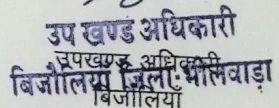 उप खण्ड अधिकारी
उपखण्ड अधिकारी
बिजौलियाँ जिला-भीलवाड़ा
बिजौलियाँ